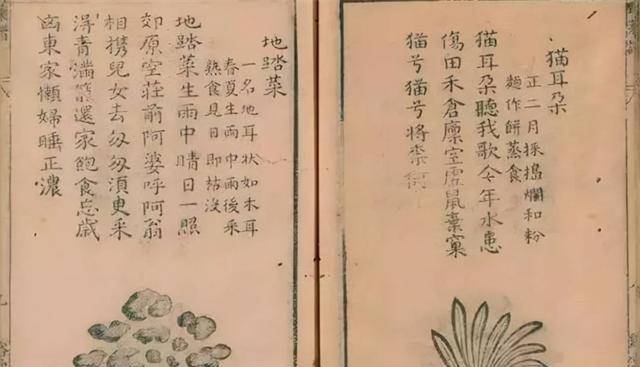 猫耳朶
正二月採搗爛和粉
麵作餅蒸食
猫耳朶聽我歌今年水患
傷田禾倉廪空虛鼠棄窠
猫兮猫兮將柰
地踏菜
一名地耳狀如木耳
春夏生雨中雨後采
熟食見日即枯没
地踏菜生雨中晴日一照
郊原空莊前阿婆呼阿翁
相携兒女去匆匆須臾采
得青滿籃還家飽食忘歲
凶東家懶婦睡正濃